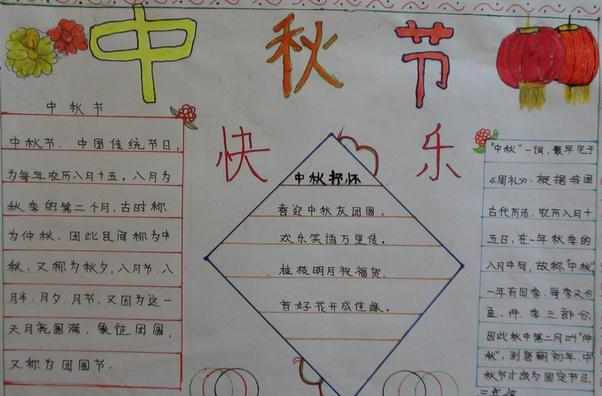 中秋节
快乐
中秋节
中秋节，中国传统节日，
为每年农历八月十五，八月为
秋季的第二个月，古时称
为仲秋，因此民间称为中
秋，又称为秋夕，八月节，八
月半，月夕，月节，又因为这一
天月亮圆满，象征团圆，
又称为团圆节
中秋抒怀
喜迎中秋友团圆，
欢乐笑语万里传，
明月祝福
百好花开成佳缘。
"中秋"一词，最早见于
《周礼》，根据我国
古代历法，农历八月十
五日，在一年秋季的
八月中旬，故称"中秋"
一年有四季，每季又分
孟，仲，季三部分，
因此秋中第二月叫"仲
秋"，到唐朝初年，中
秋节才成为固定节日，